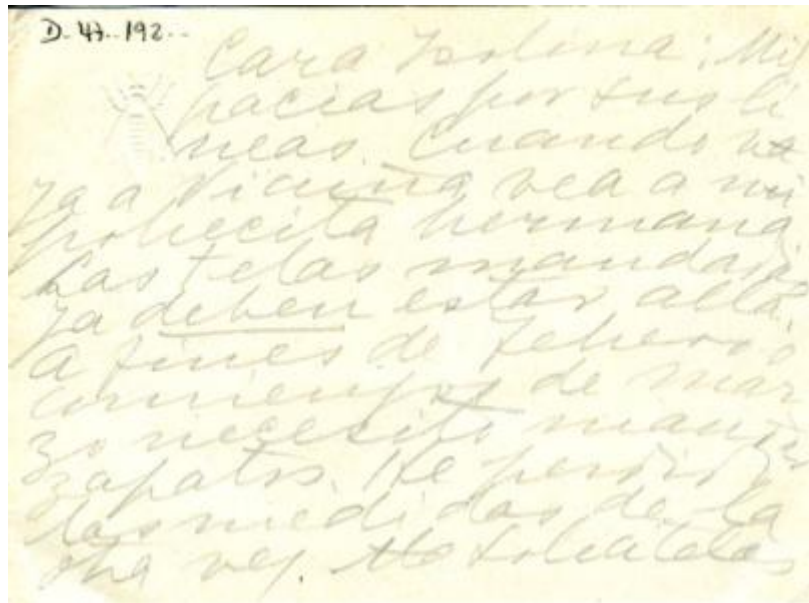 D. 47. 192.
Cara Isolina: Mil
gracias por sus lí
neas. Cuando va
ya a Vicuña vea a mi
pobrecita hermana
Las telas mandadas
ya deben estar allá.
a fines de Febrero
comienzos de mar
zo necesito mandar
zapatos. He perdido
las medidas de la
otra vez.